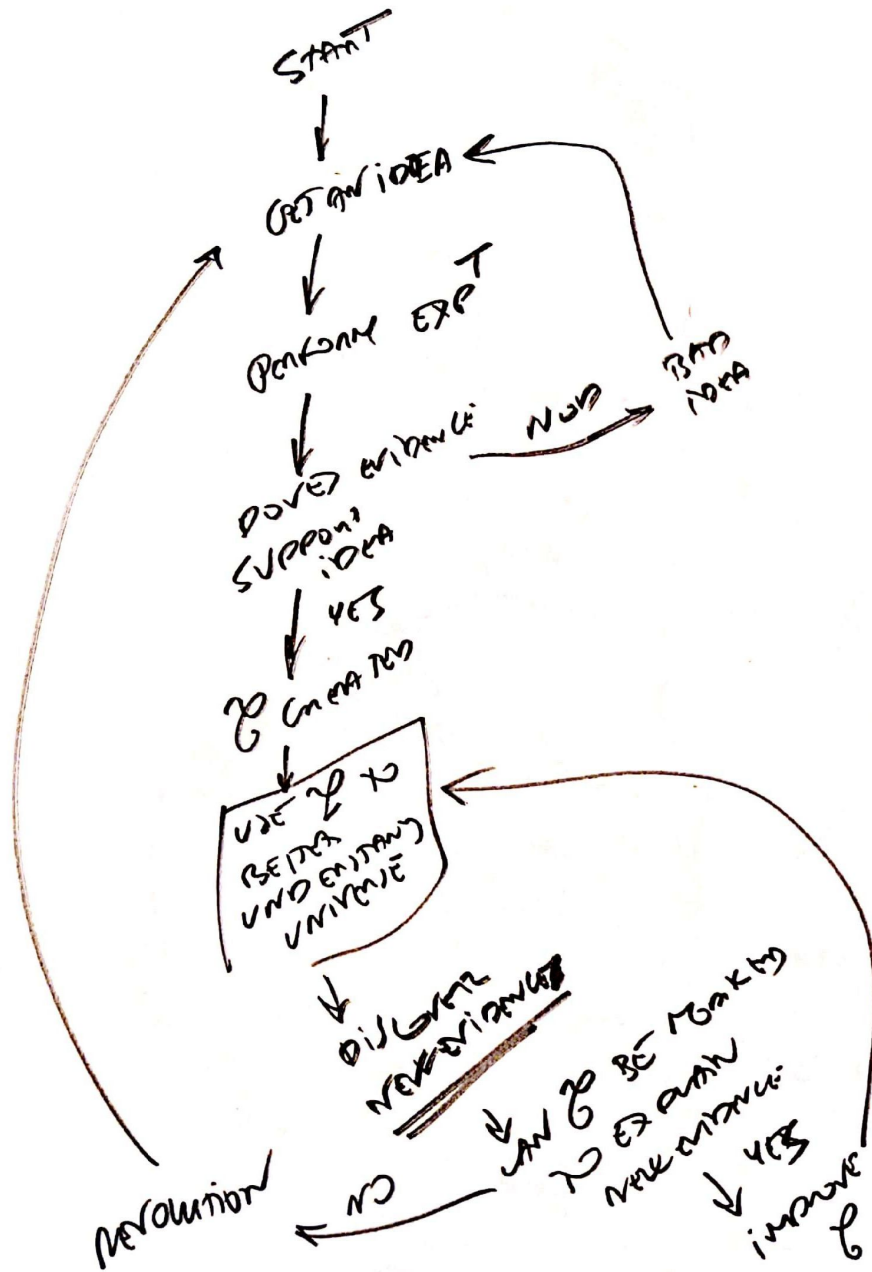 START
GET AN IDEA
PERFORM EXPT
BAD
IDEA
NO
DOES EVIDENCE
SUPPORT
IDEA
YES
CREATED
USE TO
BETTER
UNDERSTAND
UNIVERSE
DISCOVER
NEW EVIDENCE
CAN BE
TO EXPLAIN
NEW EVIDENCE
YES
IMPROVE
NO
REVOLUTION